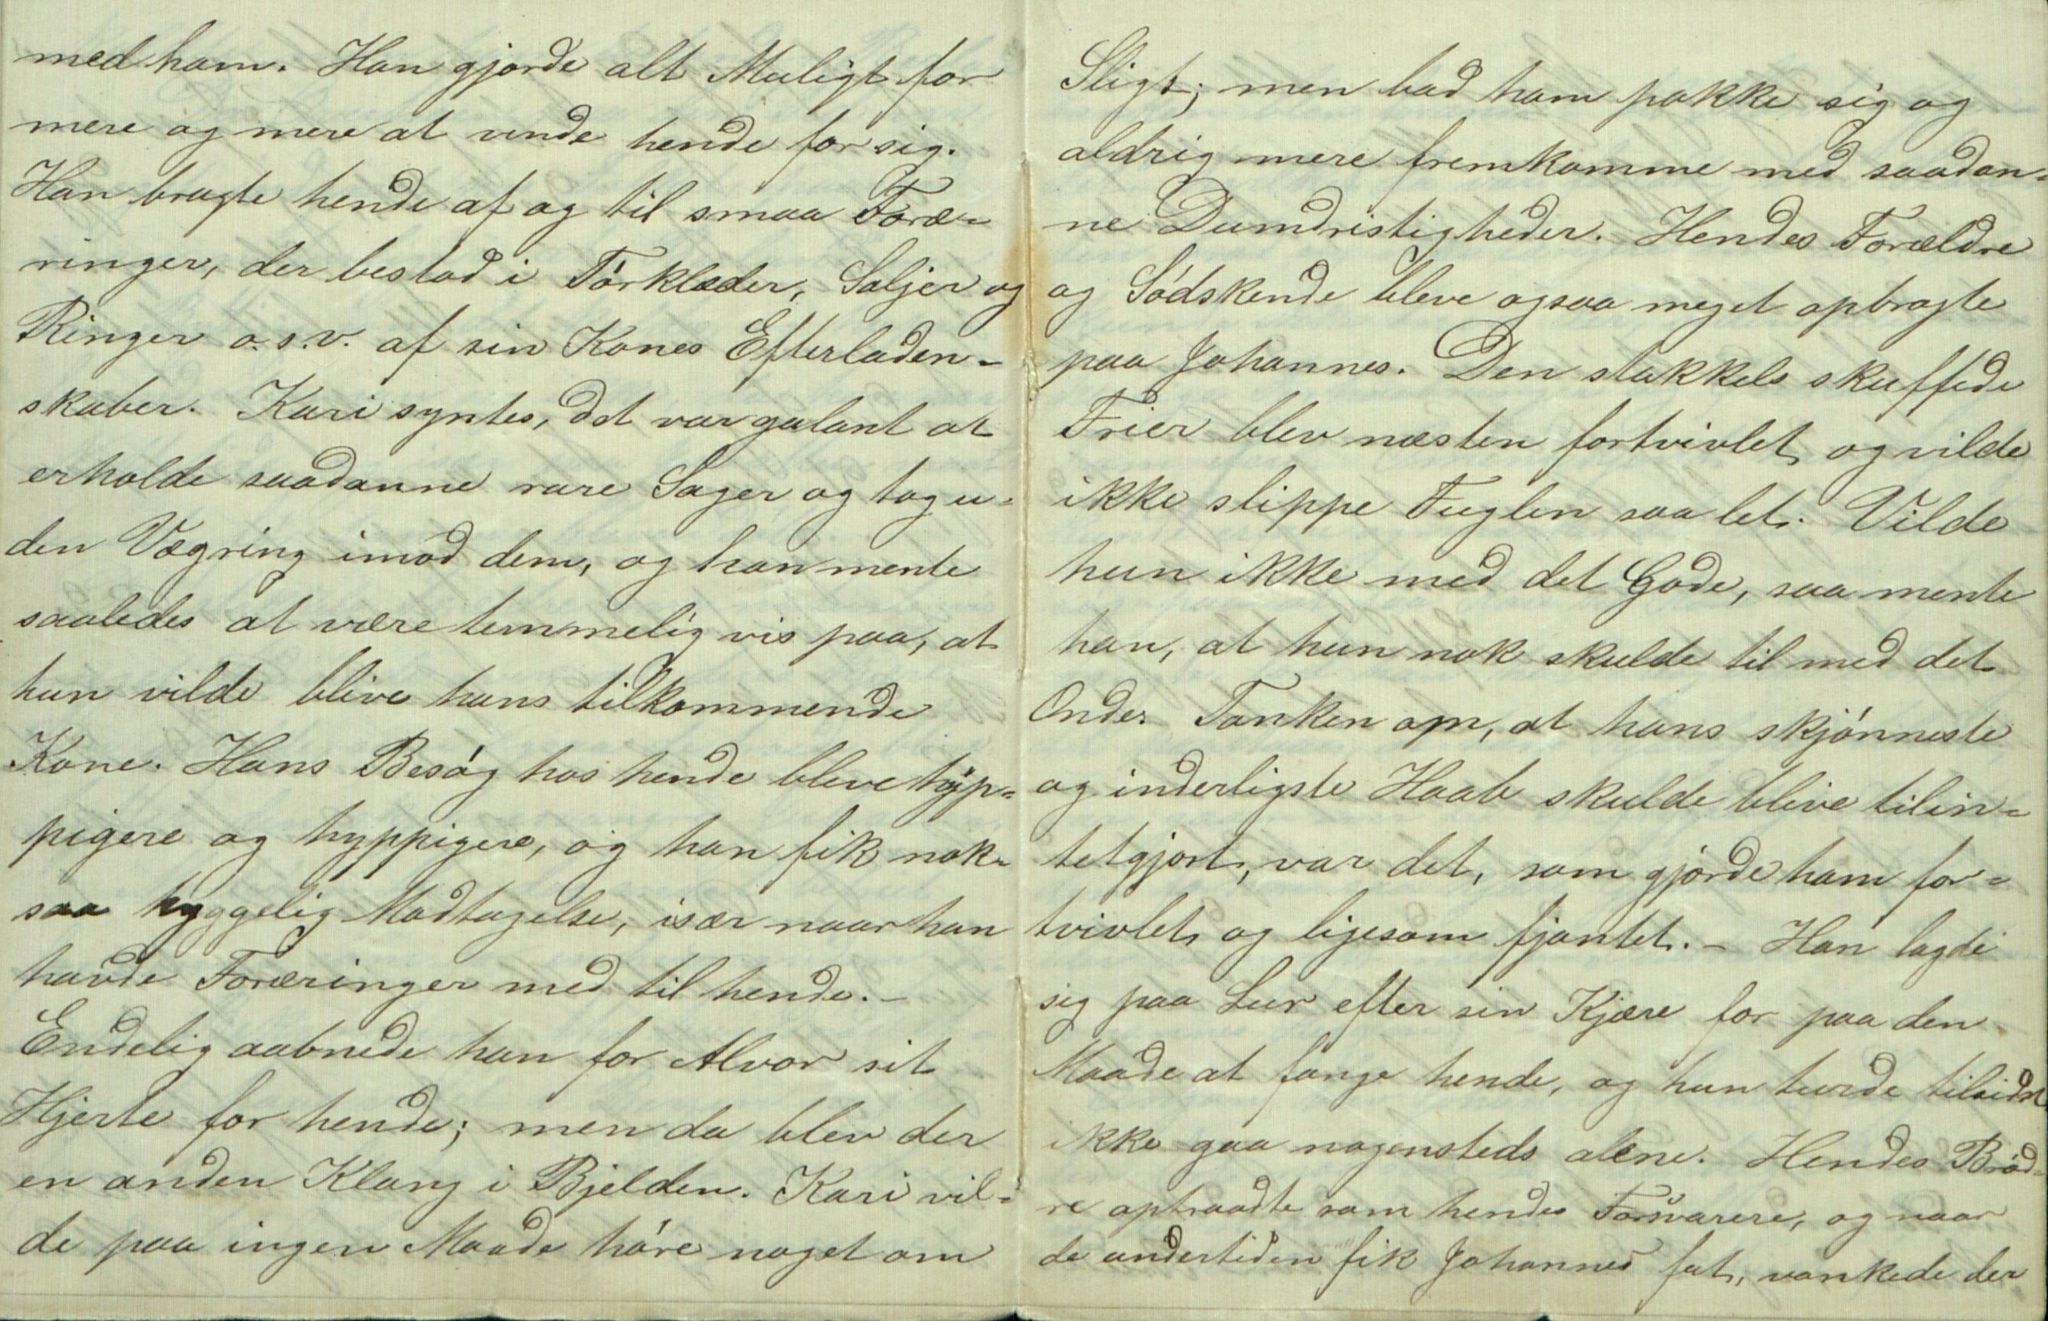 med ham. Han gjorde alt Muligt for
mere og mere at vinde hende for sig.
Han bragte hende af og til smaa Foræ-
ringer, der bestod i Tórklæder, Søljer og
Ringer o.s.v. af sin Kones Efterladen-
skaber. Kari syntes, det var galant at
erholde saadanne rare Sager og tog u-
den Vægring imod dem, og han mente
saaledes at være temmelig vis paa, at
hun vilde blive hans tilkommende
Kone. Hans Besóg hos hende bleve hyp-
pigere og hyppigere, og han fik nok-
saa hyggelig Modtagelse, især naar han
havde Foræringer med til hende. -
Endelig aabnede han for Alvor sit
Hjerte for hende; men da blev der
en anden Klang i Bjelden. Kari vil-
de paa ingen Maade hóre noget om
Sligt; men bad ham pakke sig og
aldrig mere fremkomme med saadan-
ne Dumdristigheder. Hendes Forældre
og Södskende bleve ogsaa meget opbragte
paa Johannes. Den stakkels skuffede
Frier blev næsten fortvivlet og vilde
ikke slippe Fuglen saa let. Vilde
hun ikke med det Gode, saa mente
han, at hun nok skulde til med det
Onde. Tanken om, at hans skjónneste
og inderligste Haab skulde blive tilin-
tetgjort, var det, som gjorde ham for-
tvivlet og ligesom fjantet. - Han lagde
sig paa Lur efter sin Kjære for paa den
Maade at fange hende, og hun turde tilsidst
ikke gaa nogensteds alene. Hendes Bród-
re optraadte som hendes Forsvarere, og naar
de undertiden fik Johannes fat, vankede der